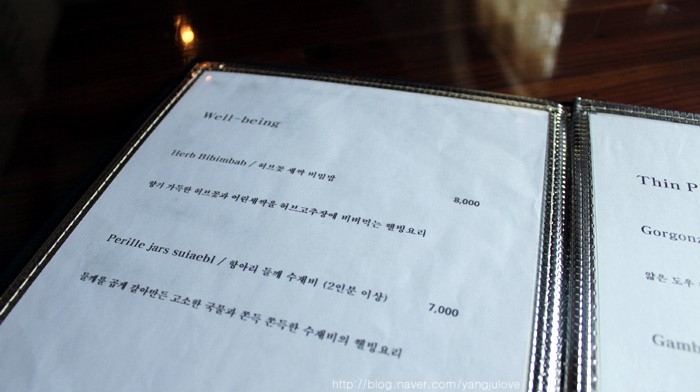 Well-being
Herb Bibimbab / 허브꽃 새싹 비빔밥
8,000
향기 가득한 허브꽃과 어린새싹을 허브고추장에 비벼먹는 웰빙요리
Perille jars suiaebl / 항아리 들깨 수제비 (2인분 이상)
7,000
들깨를 곱게 갈아만든 고소한 국물과 쫀득 쫀득한 수제비의 웰빙요리
Thin P
Gorgonz
얇은 도우
Gamb
http://blog.naver.com/yangjulove